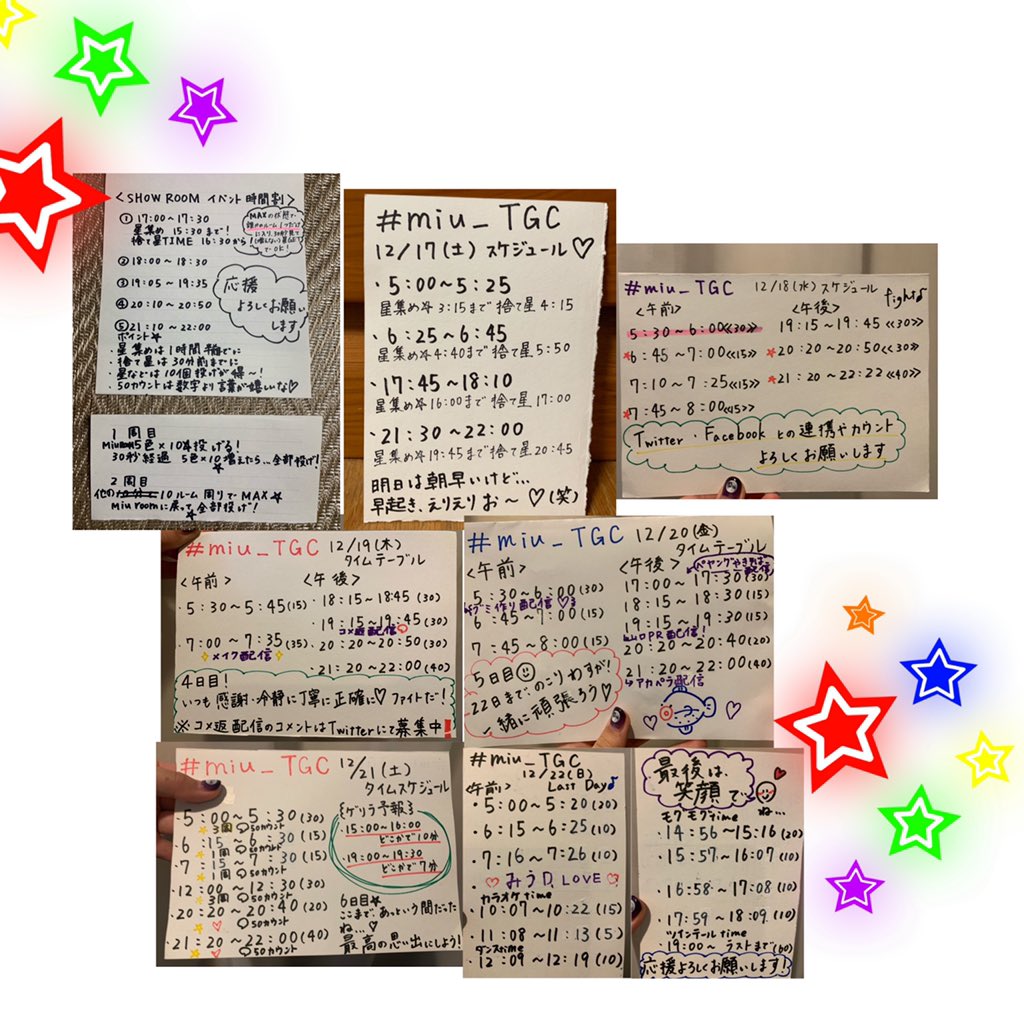 <SHOWROOM イベント時間割>
① 17:00～17:30
星集め 15:30まで!
捨て星TIME 16:30から!
MAXの状態で、
でOK!
② 18:00～18:30
③ 19:05～19:35
④ 20:10～20:50
⑤ 21:10～22:00
応援
よろしくお願い
します
ポイント☆
・星集めは1時間半前までに
・捨て星は30分前までに
・星などは10個投げが得～!
・50カウントは数字より言葉が嬉しいな♡
1周目
Miuroom5色×10本投げる!
30秒経過 5色×10増えたら…全部投げ!
2周目
他の10ルーム周りでMAX☆
Miu roomに戻って全部投げ!
#miu_TGC
12/17(土)スケジュール♡
・5:00～5:25
星集め※3:15まで 捨て星4:15
・6:25～6:45
星集め※4:40まで 捨て星5:50
・17:45～18:10
星集め※16:00まで 捨て星17:00
・21:30～22:00
星集め※19:45まで 捨て星20:45
明日は朝早いけど…
早起き、えりえりお～♡(笑)
#miu_TGC 12/18(水)スケジュール fight♪
<午前>
5:30～6:00《30》
★6:45～7:00《15》
7:10～7:25《15》
★7:45～8:00《15》
<午後>
19:15～19:45《30》
★20:20～20:50《30》
★21:20～22:22《40》
Twitter・Facebookとの連携やカウント
よろしくお願いします
#miu_TGC 12/19(木)
タイムテーブル
<午前>
・5:30～5:45(15)
・7:00～7:35(35)
✧メイク配信✧
<午後>
・18:15～18:45(30)
・19:15～19:45(30)
コメ返配信
・20:20～20:50(30)
・21:20～22:00(40)
4日目!
いつも感謝・冷静に丁寧に正確に♡ファイトだ!
※コメ返配信のコメントはTwitterにて募集中!
#miu_TGC 12/20(金)
タイムテーブル
<午前>
・5:30～6:00(30)
グミ作り配信♡
・6:45～7:00(15)
・7:45～8:00(15)
<午後>
ペヤングやきそば配信
・17:00～17:30(30)
・18:15～18:30(15)
・19:15～19:30(15)
PR配信!
・20:20～20:40(20)
・21:20～22:00(40)
↳アカペラ配信
5日目☺
22日まで、のこりわずか!
一緒に頑張ろう♡
#miu_TGC 12/21(土)
タイムスケジュール
・5:00～5:30(30)
★3周 50カウント
・6:15～6:30(15)
★1周 50カウント
・7:15～7:30(15)
★1周 50カウント
・12:00～12:30(30)
★3周 50カウント
・20:20～20:40(20)
★♡ 50カウント
・21:20～22:00(40)
★♡ 50カウント
《ゲリラ予報》
・15:00～16:00
どこかで10分
・19:00～19:30
どこかで7分
6日目☆
ここまで、あっという間だったね…♡
最高の思い出にしよう!
#miu_TGC
12/22(日)
<午前> Last Day♪
・5:00～5:20(20)
・6:15～6:25(10)
・7:16～7:26(10)
♡みうD.LOVE♡
カラオケtime
・10:07～10:22(15)
・11:08～11:13(5)
ダンスtime
・12:09～12:19(10)
最後は、
笑顔で、
ね…
モグモグtime
・14:56～15:16(20)
・15:57～16:07(10)
・16:58～17:08(10)
・17:59～18:09(10)
ツインテールtime
・19:00～ラストまで(60)
応援よろしくお願いします!